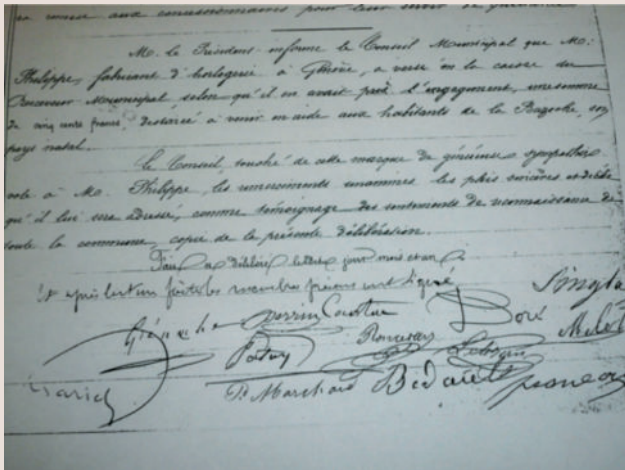 aux concessionnaires pour leur
M. le Président informe le Conseil Municipal que M.
Philippe, fabricant d'horlogerie à Genève, a versé en la caisse du
Receveur Municipal, selon qu'il en avait pris l'engagement, une somme
de cinq cents francs, destinée à venir en aide aux habitants de la Bazoche, son
pays natal.
Le Conseil, touché de cette marque de généreuse sympathie
vote à M. Philippe, les remerciements unanimes les plus sincères et
qu'il lui sera adressé, comme témoignage des sentiments de reconnaissance de
toute la commune, copie de la présente délibération.
Fait et délibéré les dits jour mois et an.
Et après lecture faite les membres présents ont signé.
Perrin Doré
P. Marchand Bedouet